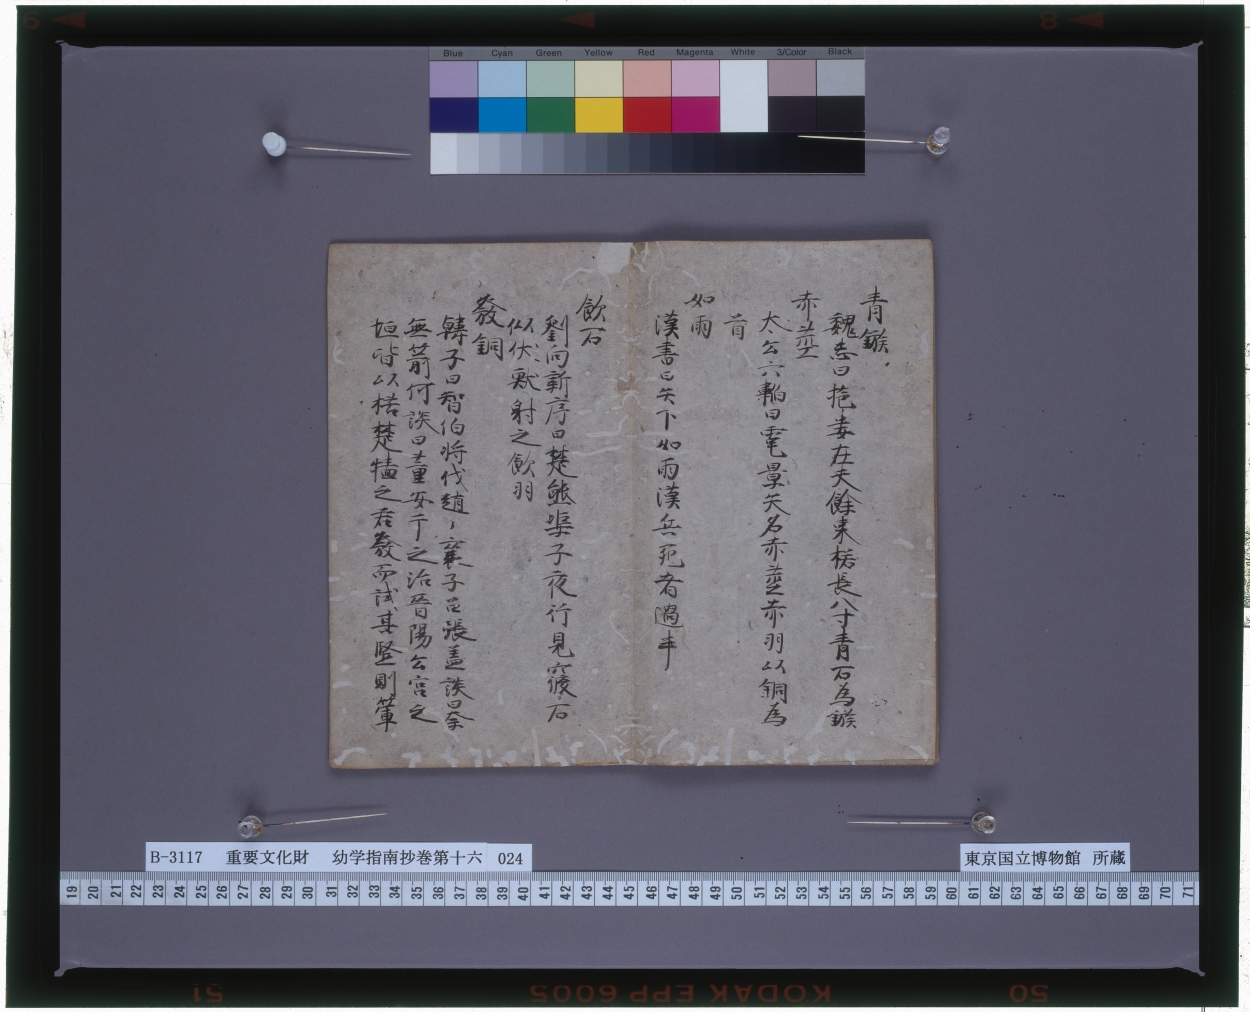 Blue Cyan Green Yellow Red Magenta White 3/Color Black
青鏃
魏志曰挹婁在夫餘東楛長八寸青石為鏃
赤莖
太公六韜曰電景矢名赤莖赤羽以銅為
首
如雨
漢書曰矢下如雨漢兵死者過半
飲石
劉向新序曰楚熊渠子夜行見寢石
似伏獸射之飲羽
發銅
韓子曰智伯將伐趙〻襄子召張孟談曰奈
無箭何談曰董安于之治晉陽公宮之
垣皆以楛楚牆之君發而試其堅則簞
B-3117 重要文化財 幼学指南抄巻第十六 024
東京国立博物館 所蔵
19 20 21 22 23 24 25 26 27 28 29 30 31 32 33 34 35 36 37 38 39 40 41 42 43 44 45 46 47 48 49 50 51 52 53 54 55 56 57 58 59 60 61 62 63 64 65 66 67 68 69 70 71
51 KODAK EPP 6005 50